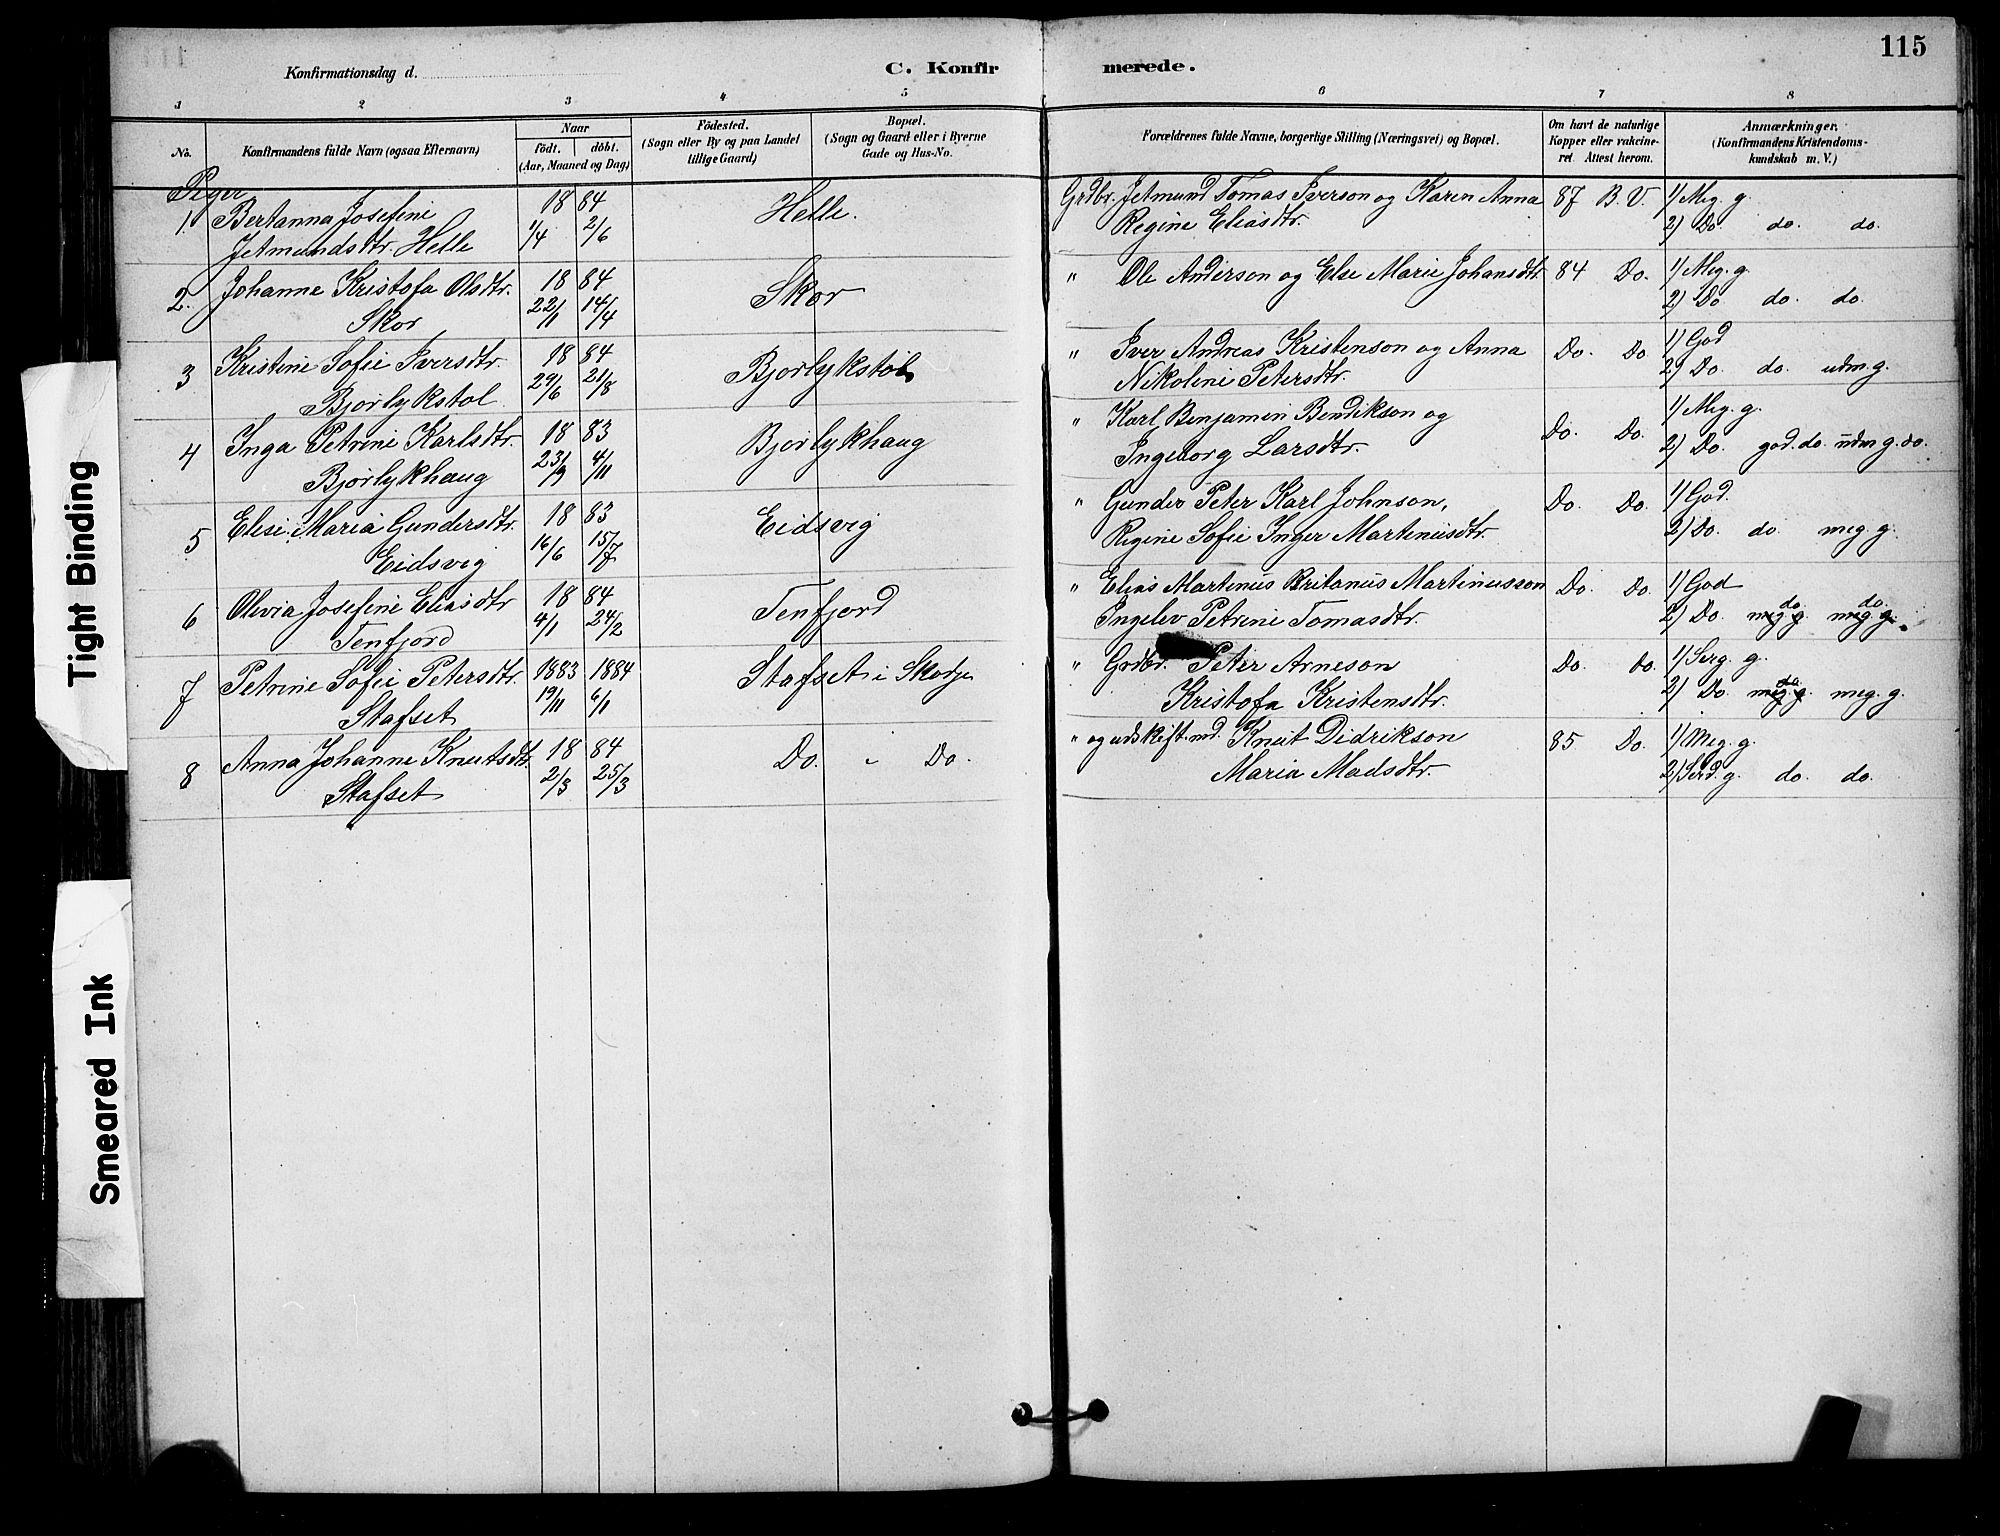 115
Konfirmationsdag d.
C. Konfirmerede.
1 2 3 4 5 6 7 8
No.
Konfirmandens fulde Navn (ogsaa Efternavn)
Naar
født. døbt.
(Aar, Maaned og Dag)
Fødested.
(Sogn eller By og paa Landet
tillige Gaard)
Bopæl.
(Sogn og Gaard eller i Byerne
Gade og Hus-No.
Forældrenes fulde Navne, borgerlige Stilling (Næringsvei) og Bopæl.
Om havt de naturlige
Kopper eller vakcine-
ret. Attest herom.
Anmærkninger.
(Konfirmandens Kristendoms-
kundskab m. V.)
Piger
1. Bertanna Josefine 18 84 Helle. Grdbr. Jetmund Tomas Iverson og Karen Anna 87 B. V. 1) Meg. g.
Jetmundsdtr. Helle 1/4 2/6 Regine Eliasdtr. 2) Do. do. do.
2. Johanne Kristofa Olsdtr. 18 84 Skor " Ole Anderson og Else Marie Johansdtr 84 Do. 1) Meg. g.
Skor 22/1 14/4 2) Do do. do.
3 Kristine Sofie Iversdtr. 18 84 Bjorlykstøl " Iver Andreas Kristenson og Anna Do. Do 1) God
Bjorlykstol 29/6 21/8 Nikoline Petersdtr. 2) Do. do. udm g.
4 Inga Petrine Karlsdtr. 18 83 Bjorlykhaug " Karl Benjamin Bendikson og Do. Do. 1) Meg. g.
Bjørlykhaug 23/9 4/11 Ingeborg Larsdtr. 2) Do. god. do. udm g. do.
5 Elise Maria Gundersdtr. 18 83 Eidsvig " Gunder Peter Karl Johnson, Do. Do. 1) God.
Eidsvig 16/6 15/7 Regine Sofie Inger Martinusdtr. 2) Do. do. meg g.
6 Olivia Josefine Eliasdtr 18 84 Tenfjord " Elias Martinus Martinusson Do. Do. 1) God
Tenfjord 4/1 24/2 Ingelev Petrine Tomasdtr. 2) Do. meg g. do. meg. g. do.
7 Petrine Sofie Petersdtr. 1883 1884 Stafset i Skodje " Grdbr. Peter Arneson Do. do. 1) Serg. g.
Stafset 19/11 6/1 Kristofa Kristensdtr. 2) Do. meg. g. do. meg. g.
8 Anna Johanne Knutsdtr. 18 84 Do. " Do. " og udskift.md. Knut Didrikson 85 Do. 1) Meg. g.
Stafset 2/3 25/3 Maria Madsdtr. 2) Serd. g. do. do.
Tight Binding
Smeared Ink